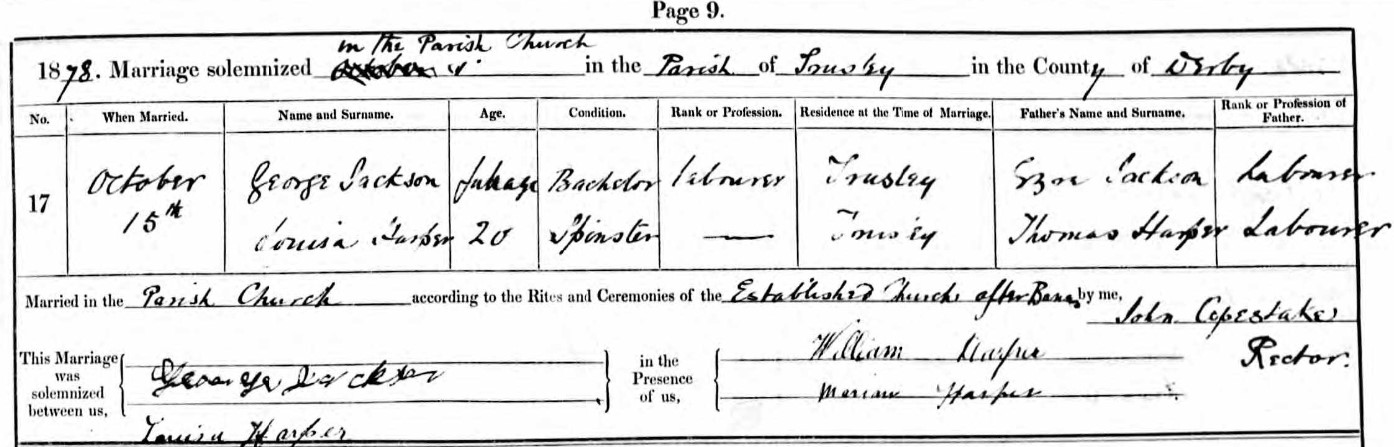 Page 9.
in the Parish Church
1878. Marriage solemnized October in the Parish of Trusley in the County of Derby
No. When Married. Name and Surname. Age. Condition. Rank or Profession. Residence at the Time of Marriage. Father's Name and Surname. Rank or Profession of Father.
17 October 15th George Jackson full age Bachelor labourer Trusley Jackson Labourer
Louisa Harper 20 Spinster — Trusley Thomas Harper Labourer
Married in the Parish Church according to the Rites and Ceremonies of the Established Church after Banns by me,
John Copestake
Rector.
This Marriage was solemnized between us, George Jackson in the Presence of us, William Harper
Louisa Harper Harper